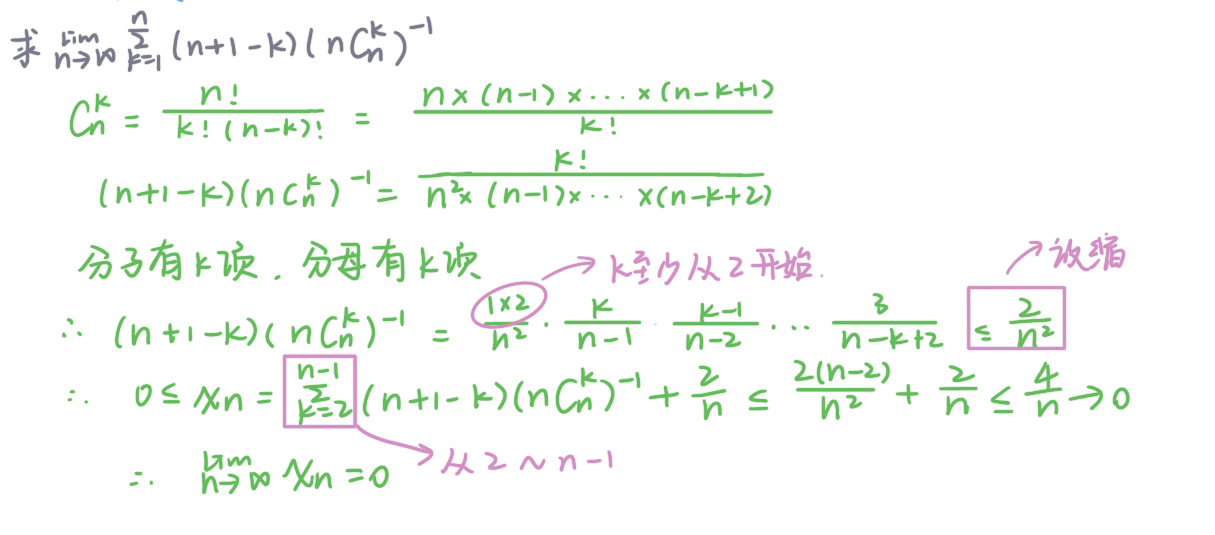 求 lim_{n→∞} Σ_{k=1}^{n} (n+1-k)(nC_n^k)^{-1}
C_n^k = n!/(k!(n-k)!) = (n×(n-1)×···×(n-k+1))/k!
(n+1-k)(nC_n^k)^{-1} = k!/(n²×(n-1)×···×(n-k+2))
分子有k项，分母有k项
k至少从2开始.
放缩
∴ (n+1-k)(nC_n^k)^{-1} = (1×2)/n² · k/(n-1) · (k-1)/(n-2) ··· 3/(n-k+2) ≤ 2/n²
∴ 0 ≤ Xn = Σ_{k=2}^{n-1} (n+1-k)(nC_n^k)^{-1} + 2/n ≤ 2(n-2)/n² + 2/n ≤ 4/n → 0
从2~n-1
∴ lim_{n→∞} Xn = 0